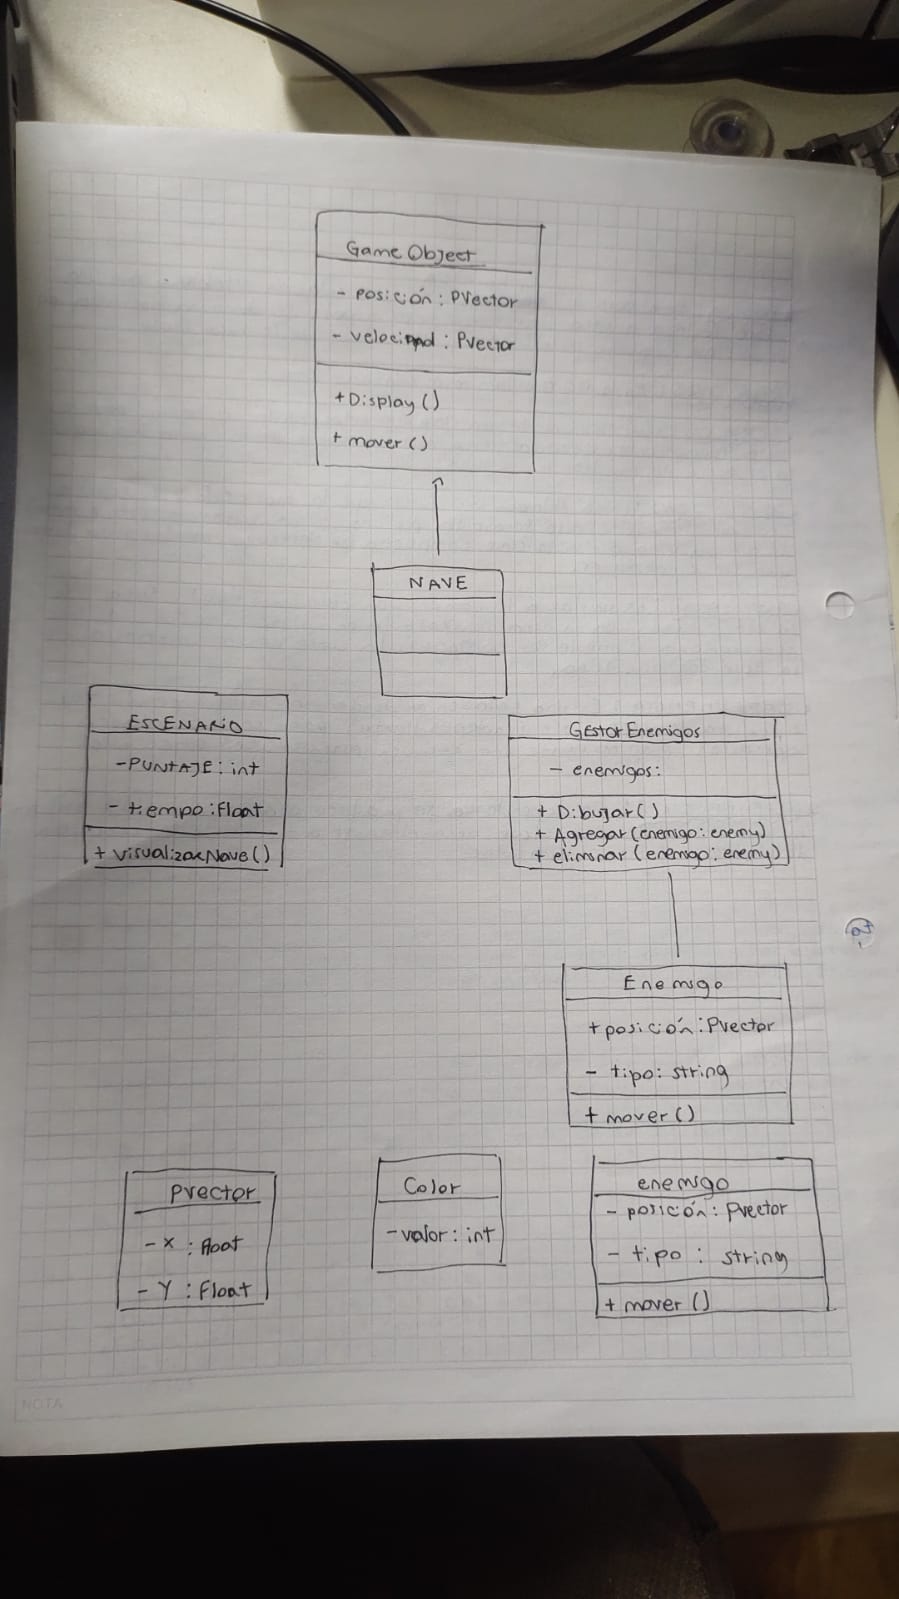 Game Object
- posición: PVector
- velocidad: PVector
+ Display ()
+ mover ()
NAVE
ESCENARIO
- PUNTAJE: int
- tiempo: Float
+ visualizarNave ()
GEstor Enemigos
- enemigos:
+ Dibujar ()
+ Agregar (enemigo: enemy)
+ eliminar (enemigo: enemy)
Enemigo
+ posición: PVector
- tipo: string
+ mover ()
PVector
- X : float
- Y : Float
Color
- valor: int
enemigo
- posición: Pvector
- tipo : string
+ mover ()
NOTA